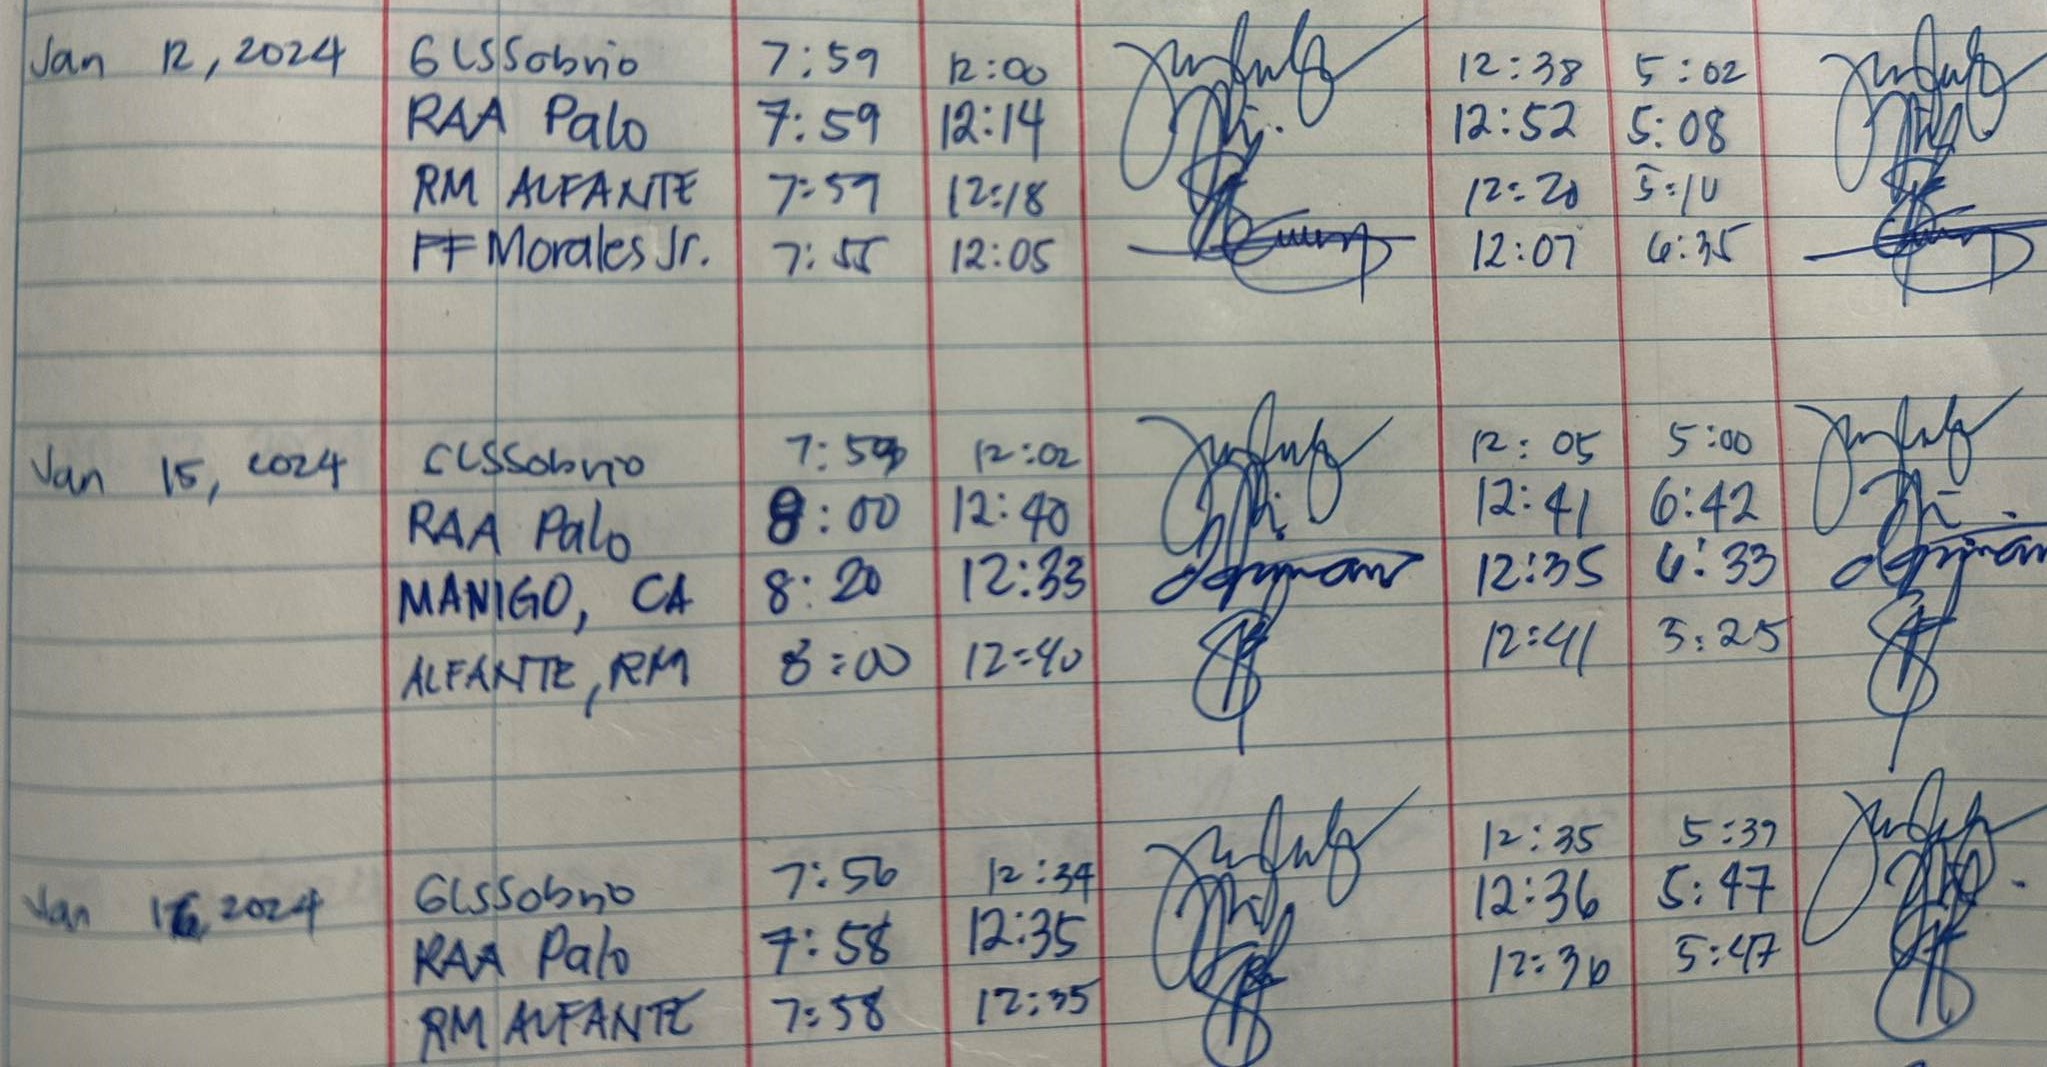 Jan 12, 2024 GLSSobrio 7:59 12:00 12:38 5:02
RAA Palo 7:59 12:14 12:52 5:08
RM ALFANTE 7:59 12:18 12:20 5:10
FF Morales Jr. 7:55 12:05 12:07 6:35
Jan 15, 2024 GLSSobrio 12:02 12:05 5:00
RAA Palo 8:00 12:40 12:41 6:42
MANIGO, CA 8:20 12:33 12:35 6:33
ALFANTE, RM 8:00 12:40 12:41 5:25
Jan 16, 2024 GLSSobrio 7:56 12:34 12:35 5:39
RAA Palo 7:58 12:35 12:36 5:47
RM ALFANTE 7:58 12:35 12:36 5:47